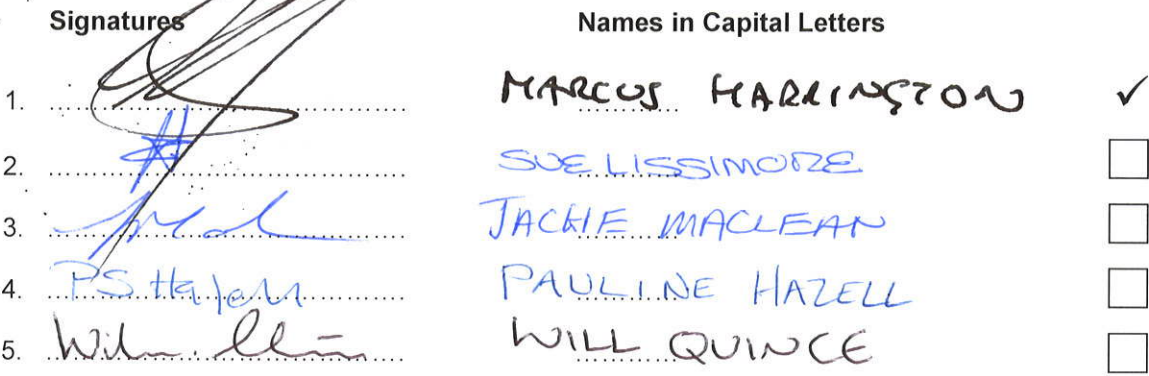 Signatures Names in Capital Letters
1. MARCUS HARRINGTON ✓
2. SUE LISSIMORE
3. JACKIE MACLEAN
4. PS Hazell PAULINE HAZELL
5. WILL QUINCE